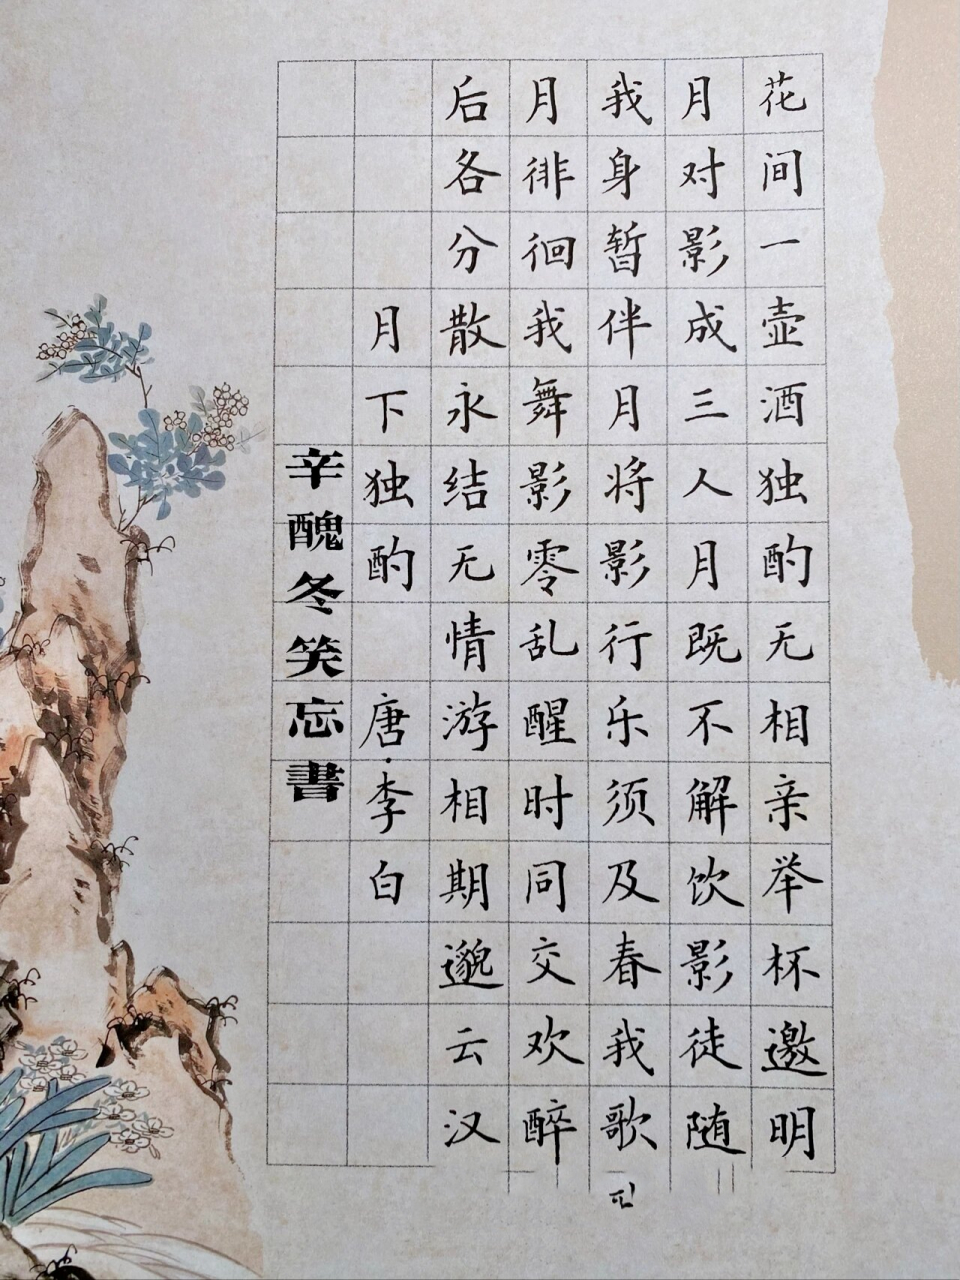 花间一壶酒独酌无相亲举杯邀明
月对影成三人月既不解饮影徒随
我身暂伴月将影行乐须及春我歌
月徘徊我舞影零乱醒时同交欢醉
后各分散永结无情游相期邈云汉
月下独酌 唐·李白
辛醜冬笑忘書